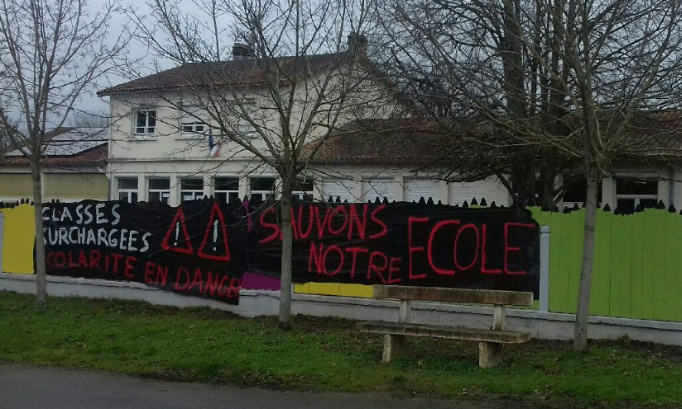 CLASSES
SURCHARGEES
SCOLARITE EN DANGER
!
!
SAUVONS
NOTRE ECOLE